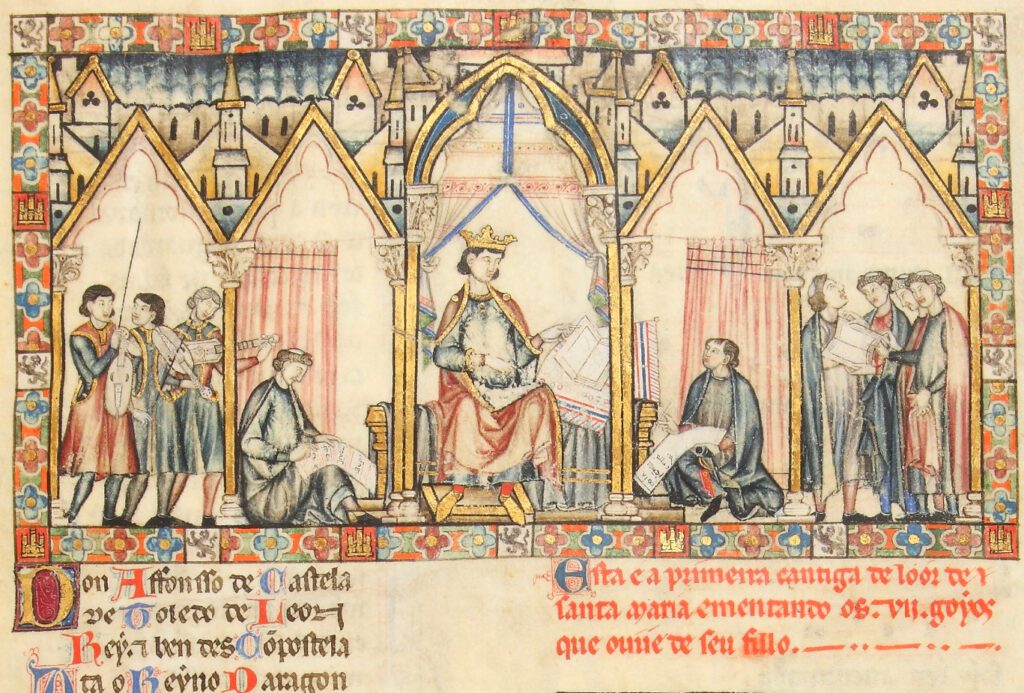 Don Affonsso de Castela
De Toledo de Leon
Rey. ⁊ ben des Cõpostela
Ata o Reyno Daragon
Esta e a primeira cantiga de loor de
santa maria ementando os .vii. goyos
que ouue de seu fillo.